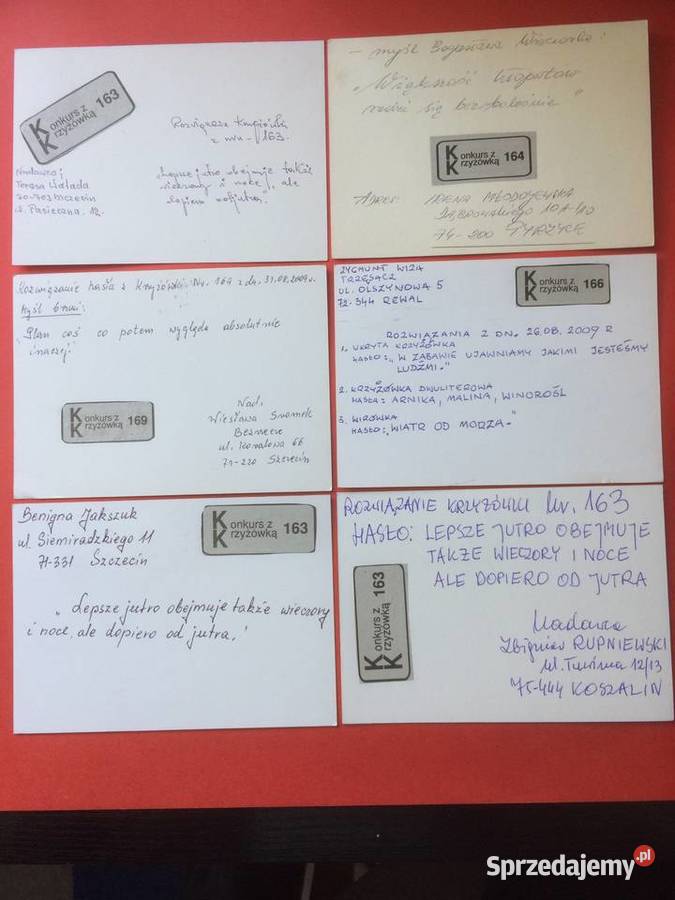 Konkurs z
Krzyżówką 163
Rozwiązanie
z nru - 163.
Nadawca;
Teresa
70-703 Szczecin
ul. Pasieczna. 12.
Lepsze jutro obejmuje także
wieczory i noce, ale
dopiero od jutra.
- myśl
"Większość kłopotów
rodzi się bezboleśnie"
Konkurs z
Krzyżówką 164
ADRES: IRENA
DĄBROWSKIEGO
74-200 PYRZYCE
Rozwiązanie hasła z Krzyżówki Nr. 169 z dn. 31.08.2009 r.
Myśl brzmi:
"Plan coś co potem wygląda absolutnie
inaczej"
Konkurs z
Krzyżówką 169
Nad.
Wiesława
ul. Koralowa 66
71-220 Szczecin
ZYGMUNT WIZA
TRZĘSACZ
UL. OLSZYNOWA 5
72-344 REWAL
Konkurs z
Krzyżówką 166
ROZWIĄZANIA Z DN. 26.08.2009 R
1. UKRYTA KRZYŻÓWKA
HASŁO: "W ZABAWIE UJAWNIAMY JAKIMI JESTEŚMY
LUDŹMI."
2. KRZYŻÓWKA DWULITEROWA
HASŁA: ARNIKA, MALINA, WINOROŚL
3. WIRÓWKA
HASŁO: "WIATR OD MORZA."
Benigna Jakszuk
ul. Siemiradzkiego 11
71-331 Szczecin
Konkurs z
Krzyżówką 163
"Lepsze jutro obejmuje także wieczory
i noce, ale dopiero od jutra."
ROZWIĄZANIE KRZYŻÓWKI Nr. 163
HASŁO: LEPSZE JUTRO OBEJMUJE
TAKŻE WIECZORY I NOCE
ALE DOPIERO OD JUTRA
Konkurs z
Krzyżówką 163
Nadawca
Zbigniew RUPNIEWSKI
12/13
75-444 KOSZALIN
Sprzedajemy.pl